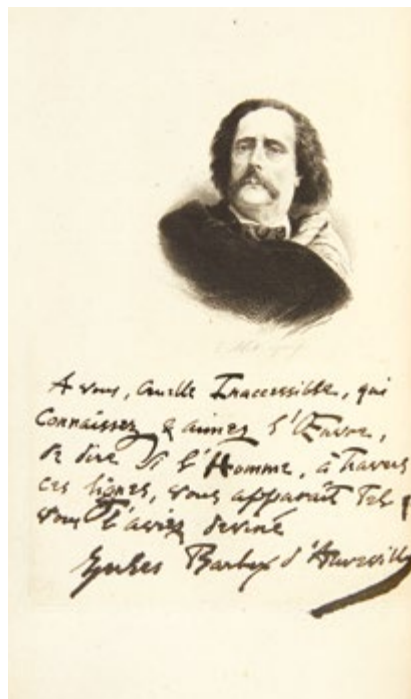 A vous, cruelle Inaccessible, qui
Connaissez & aimez l'Œuvre,
de dire si l'Homme, à travers
ces lignes, vous apparaît Tel
vous l'aviez deviné
Jules Barbey d'Aurevilly